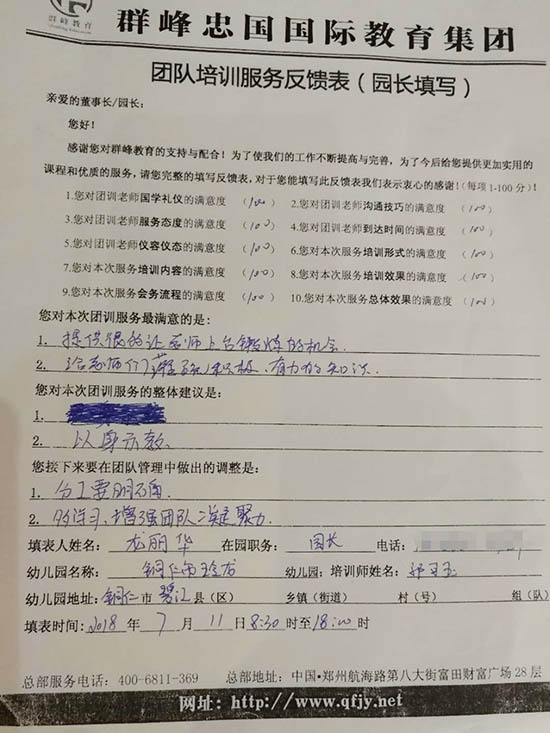 群峰教育
群峰忠国国际教育集团
团队培训服务反馈表（园长填写）
亲爱的董事长/园长：
您好！
感谢您对群峰教育的支持与配合！为了使我们的工作不断提高与完善，为了今后给您提供更加实用的
课程和优质的服务，请您完整的填写反馈表，对于您能填写此反馈表我们表示衷心的感谢！（每项1-100分）！
1.您对团训老师国学礼仪的满意度 （100） 2.您对团训老师沟通技巧的满意度 （100）
3.您对团训老师服务态度的满意度 （100） 4.您对团训老师到达时间的满意度 （100）
5.您对团训老师仪容仪态的满意度 （100） 6.您对本次服务培训形式的满意度 （100）
7.您对本次服务培训内容的满意度 （100） 8.您对本次服务培训效果的满意度 （100）
9.您对本次服务会务流程的满意度 （100） 10.您对本次服务总体效果的满意度 （100）
您对本次团训服务最满意的是：
1. 提供很的让老师上台锻炼的机会.
2. 给老师们 积极、有力的知识.
您对本次团训服务的整体建议是：
1.
2. 以身示教
您接下来要在团队管理中做出的调整是：
1. 分工要明确.
2. 多学习、增强团队凝聚力.
填表人姓名： 龙丽华 在园职务： 园长 电话：
幼儿园名称： 铜仁市 幼儿园 培训师姓名：
幼儿园地址：铜仁市 碧江 县（区） 乡镇（街道） 村（号） 组（队）
填表时间：2018 年 7 月 11 日 8:30 时至 18:00 时
总部服务电话：400-6811-369 总部地址：中国·郑州航海路第八大街富田财富广场28层
网址：http://www.qfjy.net